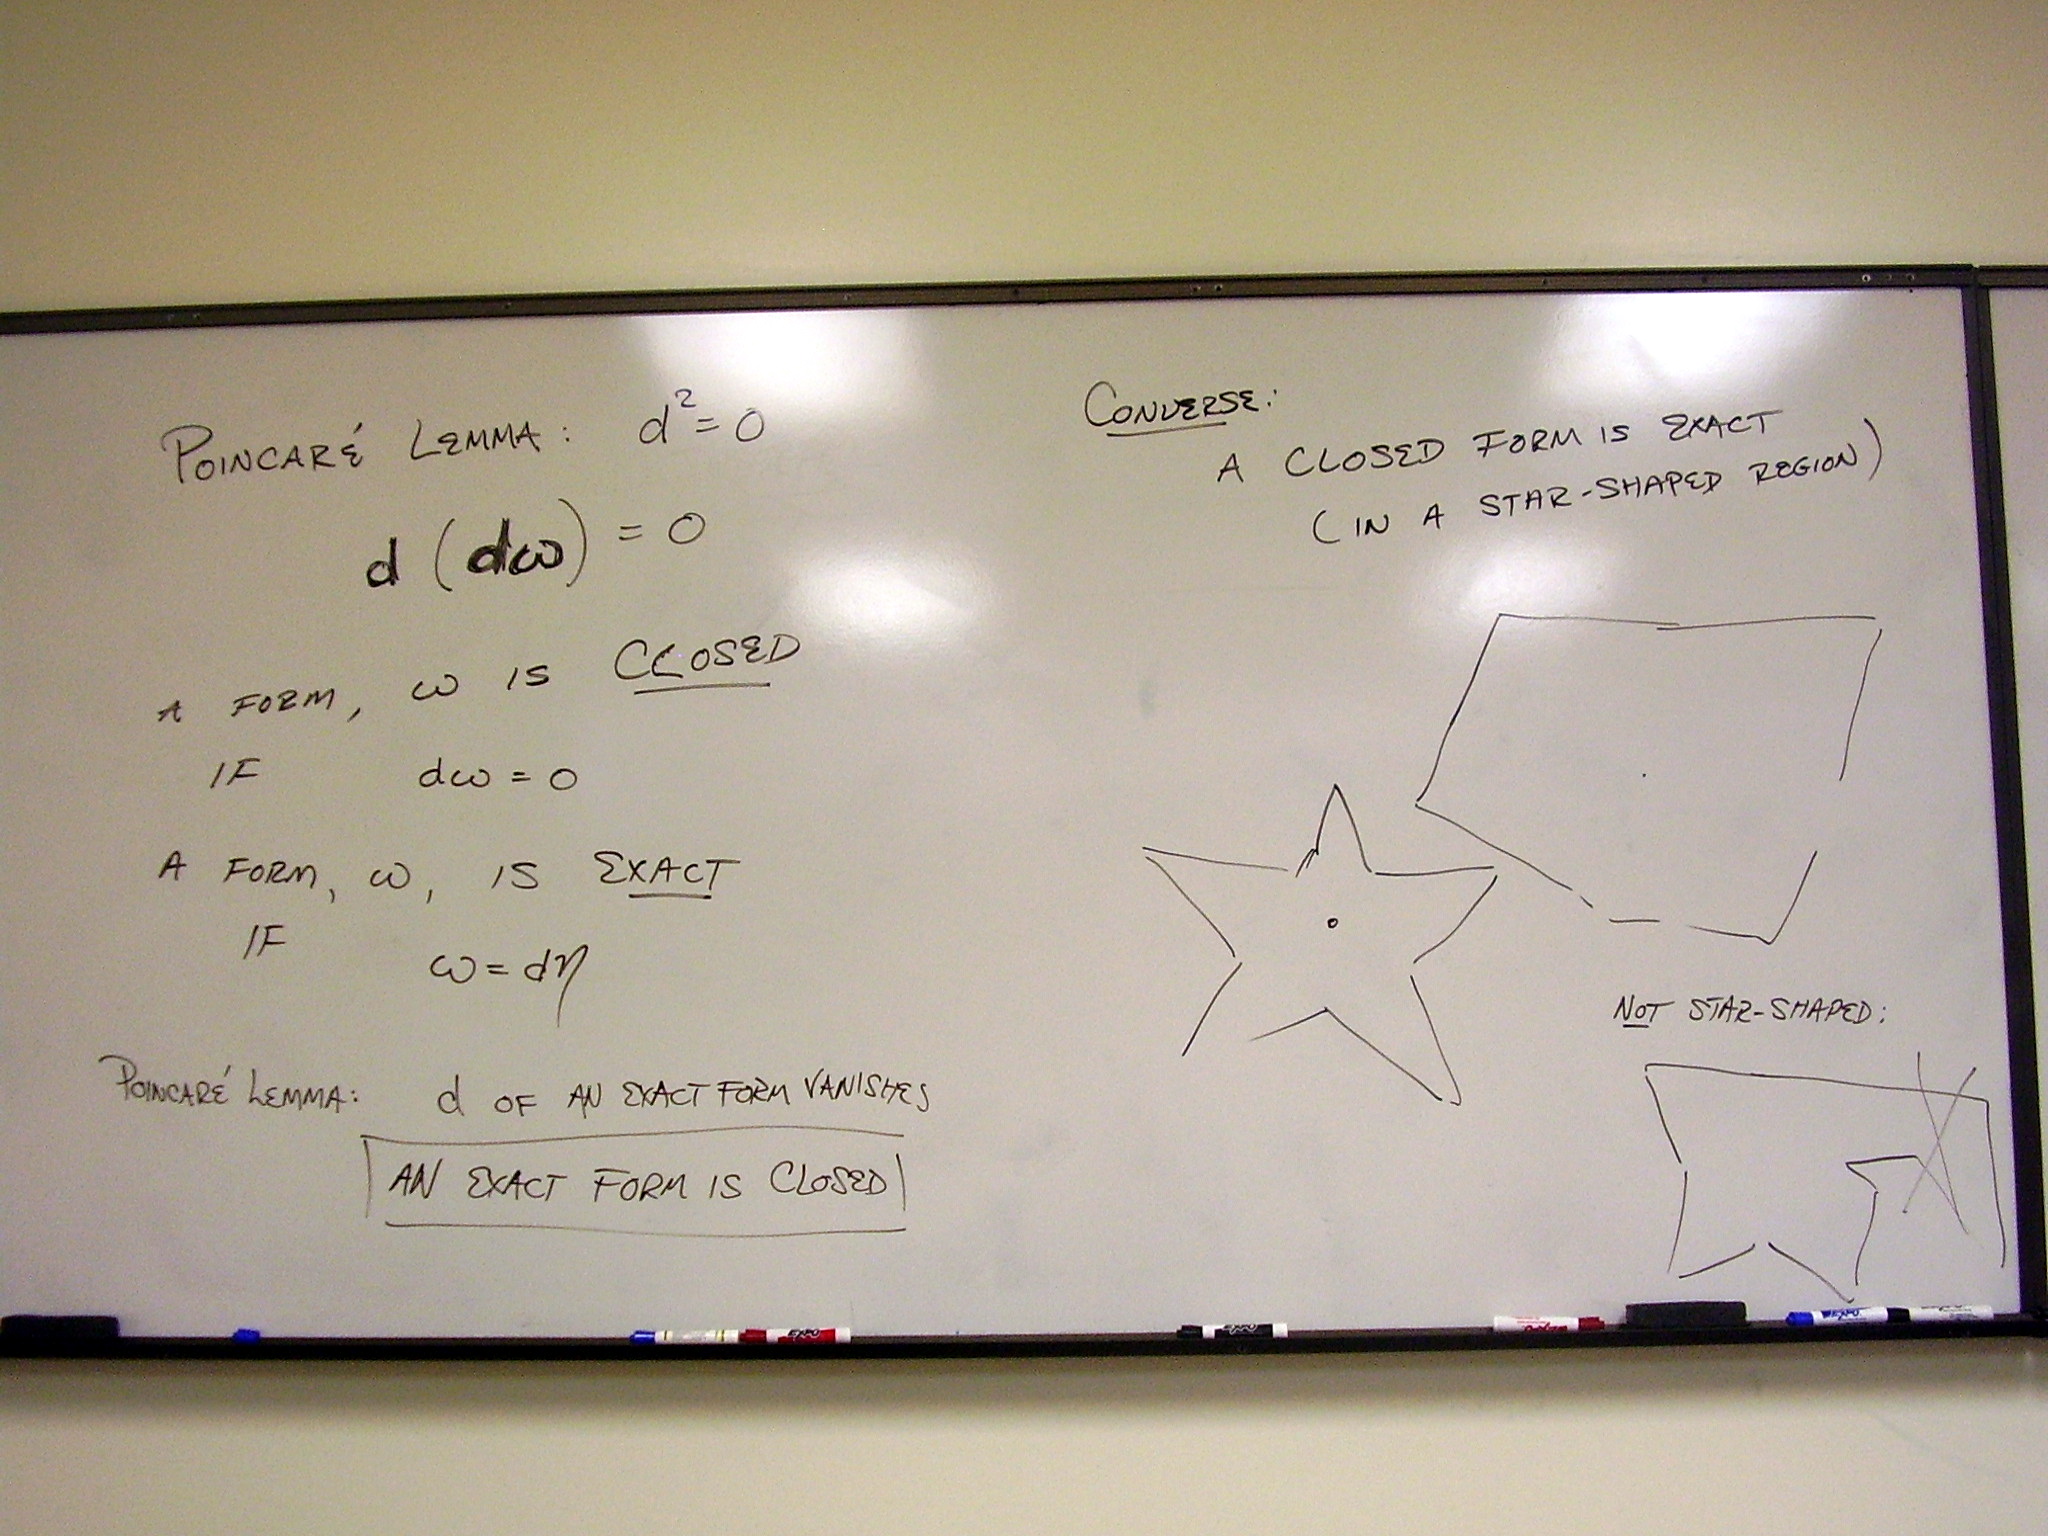 POINCARÉ LEMMA: d² = 0
d (dω) = 0
A FORM, ω IS CLOSED
IF dω = 0
A FORM, ω, IS EXACT
IF ω = dη
POINCARÉ LEMMA: d OF AN EXACT FORM VANISHES
AN EXACT FORM IS CLOSED
CONVERSE:
A CLOSED FORM IS EXACT
(IN A STAR-SHAPED REGION)
NOT STAR-SHAPED:
EXPO
EXPO
EXPO